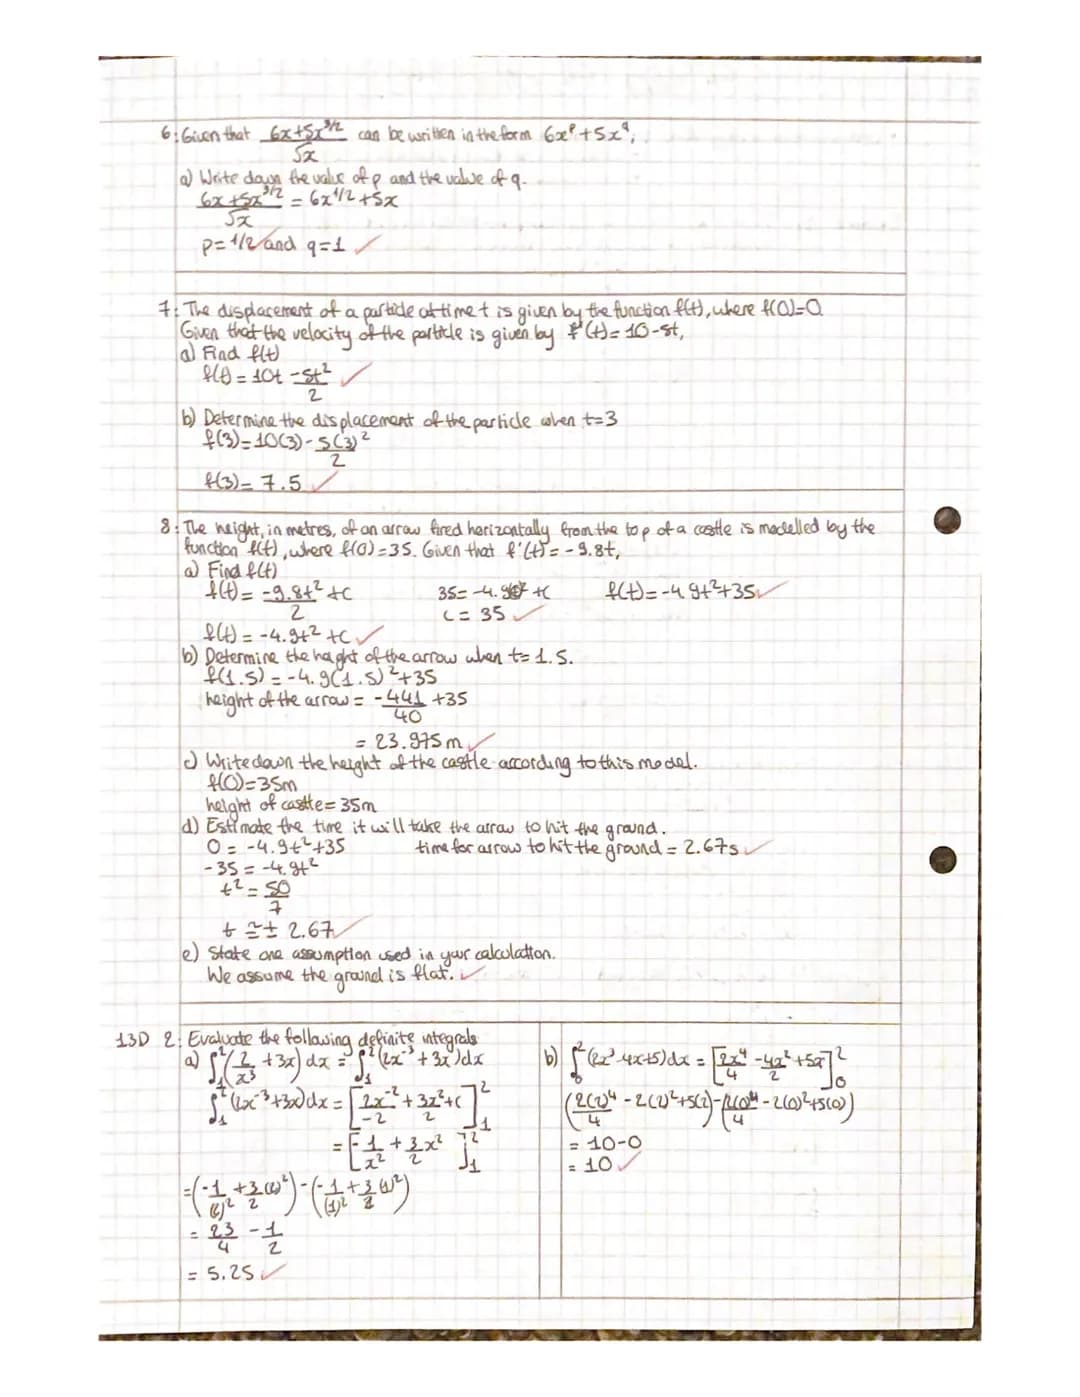 6: Given that 6x+5x^3/2 / √x can be written in the form 6x^p + 5x^q,
a) Write down the value of p and the value of q.
6x+5x^3/2 / √x = 6x^1/2 + 5x
p= 1/2 and q=1
7: The displacement of a particle at time t is given by the function f(t), where f(0)=0
Given that the velocity of the particle is given by f'(t)= 10-5t,
a) Find f(t)
f(t) = 10t - 5t²/2
b) Determine the displacement of the particle when t=3
f(3)=10(3)- 5(3)²/2
f(3)= 7.5
8: The height, in metres, of an arrow fired horizontally from the top of a castle is modelled by the
function f(t), where f(0)=35. Given that f'(t)= -9.8t,
a) Find f(t)
f(t) = -9.8t²/2 +c 35= -4.9(0)² +c f(t)=-4.9t²+35
c= 35
f(t) = -4.9t² +c
b) Determine the height of the arrow when t= 1.5.
f(1.5) = -4.9(1.5)²+35
height of the arrow = -441/40 +35
= 23.975m
c) Write down the height of the castle according to this model.
f(0)=35m
height of castle= 35m
d) Estimate the time it will take the arrow to hit the ground.
0 = -4.9t²+35 time for arrow to hit the ground = 2.67s
-35 = -4.9t²
t² = 50/7
t ≅ ± 2.67
e) State one assumption used in your calculation.
We assume the ground is flat.
13D 2: Evaluate the following definite integrals
a) ∫₁²(2/x³ +3x) dx = ∫₁²(2x⁻³ + 3x)dx
∫₁²(2x⁻³+3x)dx = [2x⁻²/-2 + 3x²/2 +c]₁²
= [-1/x² + 3/2 x²]₁²
=(-1/(2)² + 3/2(2)²) - (-1/(1)² + 3/2(1)²)
= 23/4 - 1/2
= 5.25
b) ∫₀²(2x³-4x+5)dx = [2x⁴/4 - 4x²/2 +5x]₀²
(2(2)⁴/4 - 2(2)²+5(2)) - (2(0)⁴/4 - 2(0)²+5(0))
= 10-0
= 10